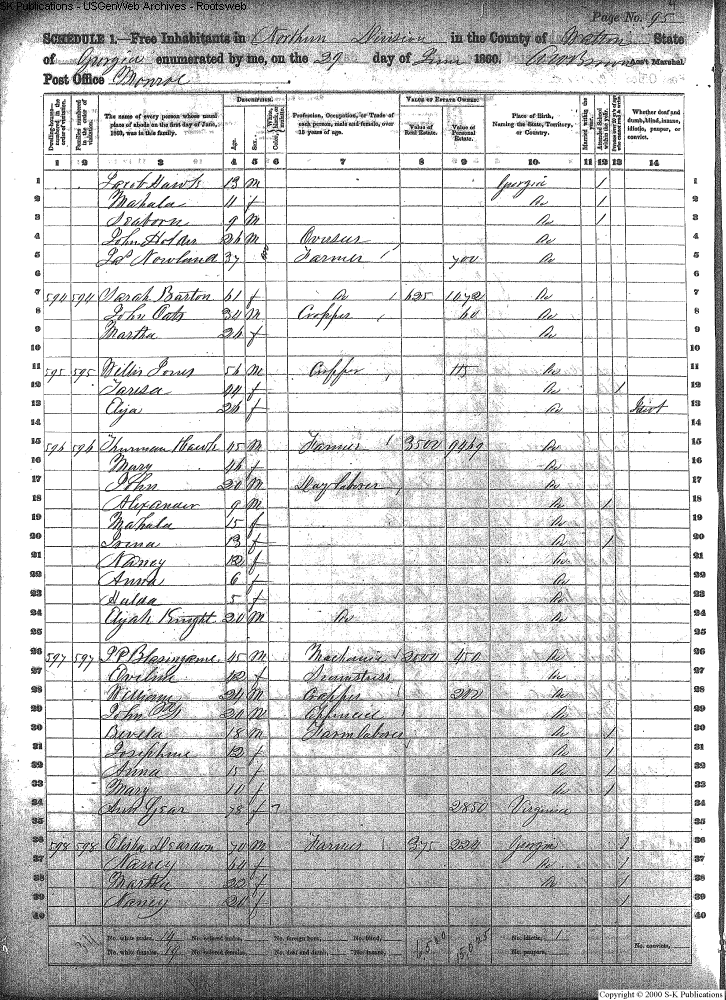 S-K Publications - USGenWeb Archives - Rootsweb
Page No. 95
SCHEDULE 1.—Free Inhabitants in Northern Division in the County of Walton State
of Georgia enumerated by me, on the 29 day of June 1860. Ass't Marshal.
Post Office Monroe
Dwelling-houses—numbered in the order of visitation.
Families numbered in the order of visitation.
The name of every person whose usual place of abode on the first day of June, 1860, was in this family.
DESCRIPTION.
Age.
Sex.
White, black, or mulatto.
Profession, Occupation, or Trade of each person, male and female, over 15 years of age.
VALUE OF ESTATE OWNED.
Value of Real Estate.
Value of Personal Estate.
Place of Birth, Naming the State, Territory, or Country.
Married within the year.
Attended School within the year.
Whether deaf and dumb, blind, insane, idiotic, pauper, or convict.
1 2 3 4 5 6 7 8 9 10 11 12 13 14
1 Jacob Hawk 13 M Georgia 1 1
2 Mahala 11 f Do 1 2
3 Seaborn 9 M Do 1 3
4 John Holder 26 M Overseer Do 4
5 Nowland 37 Farmer 700 Do 5
6 6
7 594 594 Sarah Barton 61 f Do 1 625 1072 Do 7
8 John Oats 30 M Cropper 60 Do 8
9 Martha 26 f Do 9
10 10
11 595 595 Willis Jones 56 M Cropper 115 Do 11
12 Taresa 44 f Do 1 12
13 Eliza 26 f Do Idiot 13
14 14
15 596 596 Thurman Hawk 45 M Farmer 1 3500 9469 Do 15
16 Mary 46 f Do 16
17 John 20 M Day laborer Do 17
18 Alexander 9 M Do 1 18
19 Mahala 15 f Do 19
20 13 f Do 1 20
21 Nancy 12 f Do 21
22 Anna 6 f Do 22
23 Hulda 5 f Do 23
24 Elijah Knight 20 M Do Do 24
25 25
26 597 597 P P Blasingame 45 M Mechanic 2000 450 Do 26
27 Eveline 42 f Seamstress Do 27
28 William 24 M Cropper 200 Do 28
29 John 20 M Do 29
30 18 M Farm laborer Do 1 30
31 Josephine 12 f Do 1 31
32 Anna 15 f Do 1 32
33 Mary 10 f Do 1 33
34 Ann Gear 78 f 2850 Virginia 34
35 35
36 598 598 Elisha Dearden 70 M Farmer 375 220 Georgia 1 36
37 Nancy 64 f Do 1 37
38 Martha 22 f Do 1 38
39 Nancy 20 f Do 1 39
40 40
No. white males, 14 No. colored males, No. foreign born, No. blind, No. idiotic, 1
No. white females, 19 No. colored females, No. deaf and dumb, No. insane, 6,500 15,025 No. paupers, No. convicts,
Copyright © 2000 S-K Publications